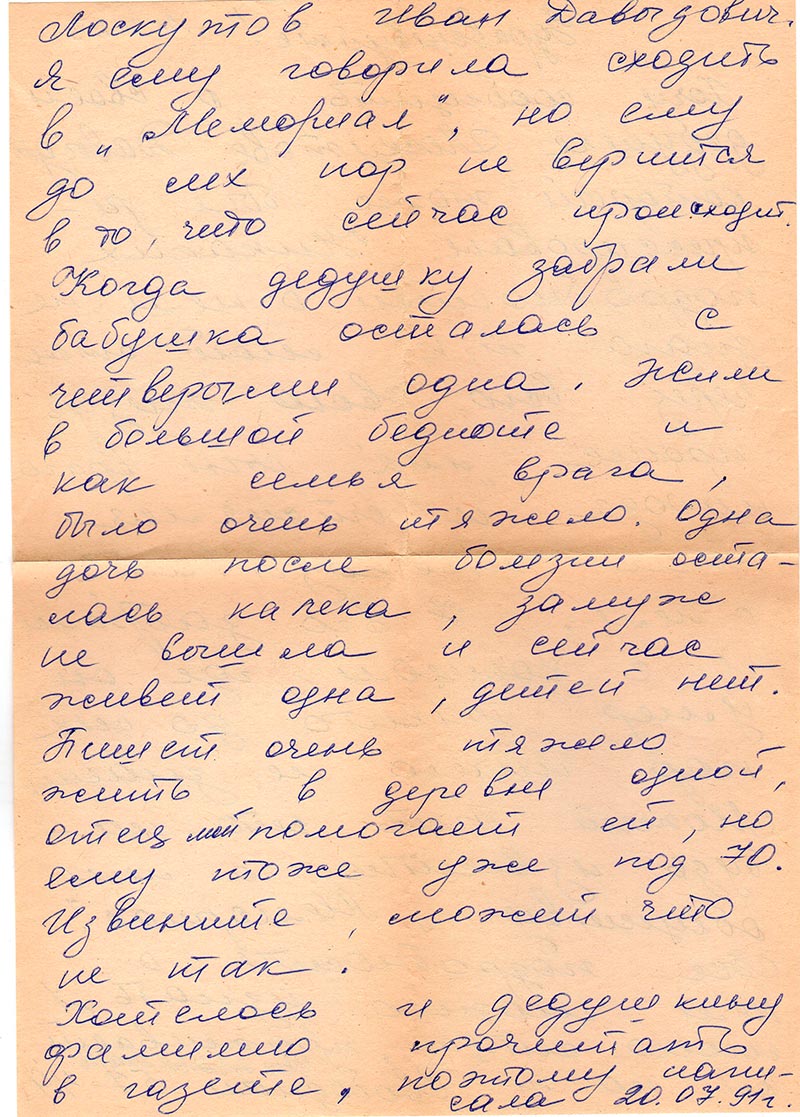 Лоскутов Иван Давыдович.
Я ему говорила сходить
в „Мемориал", но ему
до сих пор не верится
в то, что сейчас происходит.
Когда дедушку забрали
бабушка осталась с
четверыми одна. Жили
в большой бедноте и
как семья врага,
было очень тяжело. Одна
дочь после болезни оста-
лась калека, замуж
не вышла и сейчас
живет одна, детей нет.
Пишет очень тяжело
жить в деревне одной,
отец мой помогает ей, но
ему тоже уже под 70.
Извините, может что
не так.
Хотелось и дедушкину
фамилию прочитать
в газете, поэтому напи-
сала 20.07.91г.